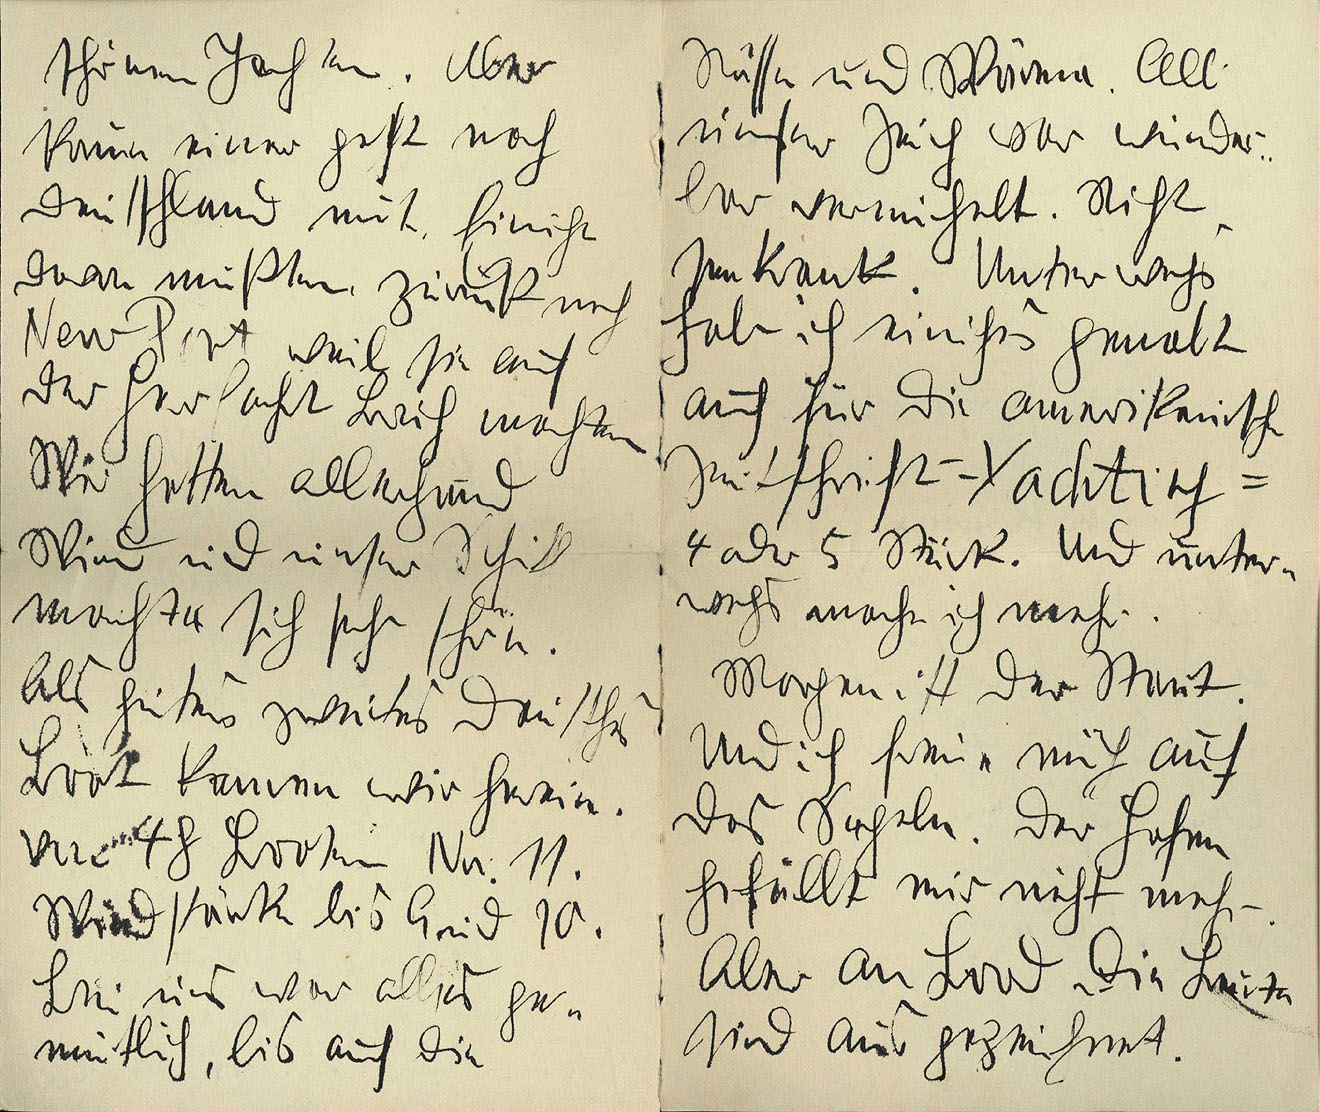 schönen Jachten. Aber
kaum einer geht nach
Deutschland mit. Einige
davon mußten zurück nach
New-Port weil sie auf
der Herfahrt Bruch machten
Wir hatten allerhand
Wind und unser Schiff
machte sich sehr schön.
Als gutes zweites deutsches
Boot kamen wir herein.
von 48 Booten Nr. 11.
Windstärke bis Grad 10.
Bei uns war alles ge-
mütlich, bis auf die
Nässe und Wärme. All
unser Zeich war wunder-
bar vernichelt. Nicht
seekrank. Unterwegs
habe ich einiges gemalt
auch für die amerikanische
Zeitschrift =Yachting=
4 oder 5 Stück. Und unter-
wegs mache ich mehr.
Morgen ist der Start.
Und ich freue mich auf
das Segeln. Der Hafen
gefällt mir nicht mehr.
Aber an Bord. Die Leute
sind ausgezeichnet.